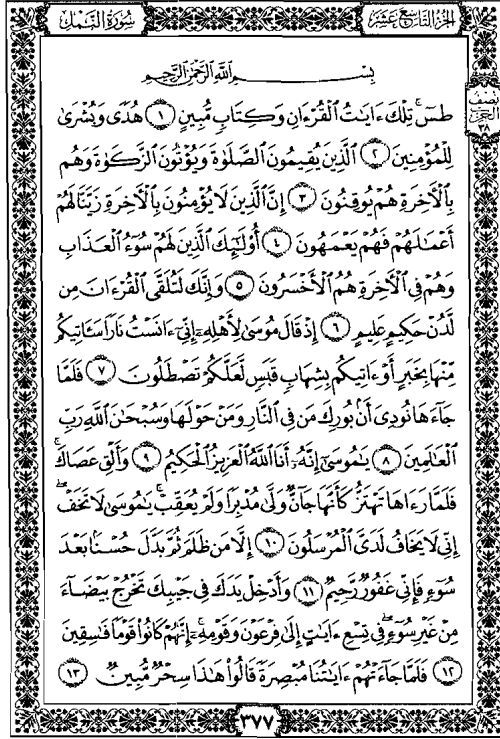 سُورَةُ النَّمْلِ الجُزْءُ التَّاسِعَ عَشَرَ
بِسْمِ ٱللَّهِ ٱلرَّحْمَٰنِ ٱلرَّحِيمِ
نصف
الحزب
٣٨
طسٓ ۚ تِلْكَ ءَايَٰتُ ٱلْقُرْءَانِ وَكِتَابٍ مُّبِينٍ ١ هُدًى وَبُشْرَىٰ
لِلْمُؤْمِنِينَ ٢ ٱلَّذِينَ يُقِيمُونَ ٱلصَّلَوٰةَ وَيُؤْتُونَ ٱلزَّكَوٰةَ وَهُم
بِٱلْءَاخِرَةِ هُمْ يُوقِنُونَ ٣ إِنَّ ٱلَّذِينَ لَا يُؤْمِنُونَ بِٱلْءَاخِرَةِ زَيَّنَّا لَهُمْ
أَعْمَٰلَهُمْ فَهُمْ يَعْمَهُونَ ٤ أُو۟لَٰٓئِكَ ٱلَّذِينَ لَهُمْ سُوٓءُ ٱلْعَذَابِ
وَهُمْ فِى ٱلْءَاخِرَةِ هُمُ ٱلْأَخْسَرُونَ ٥ وَإِنَّكَ لَتُلَقَّى ٱلْقُرْءَانَ مِن
لَّدُنْ حَكِيمٍ عَلِيمٍ ٦ إِذْ قَالَ مُوسَىٰ لِأَهْلِهِۦٓ إِنِّىٓ ءَانَسْتُ نَارًا سَـَٔاتِيكُم
مِّنْهَا بِخَبَرٍ أَوْ ءَاتِيكُم بِشِهَابٍ قَبَسٍ لَّعَلَّكُمْ تَصْطَلُونَ ٧ فَلَمَّا
جَآءَهَا نُودِىَ أَنۢ بُورِكَ مَن فِى ٱلنَّارِ وَمَنْ حَوْلَهَا وَسُبْحَٰنَ ٱللَّهِ رَبِّ
ٱلْعَٰلَمِينَ ٨ يَٰمُوسَىٰٓ إِنَّهُۥٓ أَنَا ٱللَّهُ ٱلْعَزِيزُ ٱلْحَكِيمُ ٩ وَأَلْقِ عَصَاكَ ۚ
فَلَمَّا رَءَاهَا تَهْتَزُّ كَأَنَّهَا جَآنٌّ وَلَّىٰ مُدْبِرًا وَلَمْ يُعَقِّبْ ۚ يَٰمُوسَىٰ لَا تَخَفْ
إِنِّى لَا يَخَافُ لَدَىَّ ٱلْمُرْسَلُونَ ١٠ إِلَّا مَن ظَلَمَ ثُمَّ بَدَّلَ حُسْنًۢا بَعْدَ
سُوٓءٍ فَإِنِّى غَفُورٌ رَّحِيمٌ ١١ وَأَدْخِلْ يَدَكَ فِى جَيْبِكَ تَخْرُجْ بَيْضَآءَ
مِنْ غَيْرِ سُوٓءٍ ۖ فِى تِسْعِ ءَايَٰتٍ إِلَىٰ فِرْعَوْنَ وَقَوْمِهِۦٓ ۚ إِنَّهُمْ كَانُوا۟ قَوْمًا فَٰسِقِينَ
١٢ فَلَمَّا جَآءَتْهُمْ ءَايَٰتُنَا مُبْصِرَةً قَالُوا۟ هَٰذَا سِحْرٌ مُّبِينٌ ١٣
٣٧٧